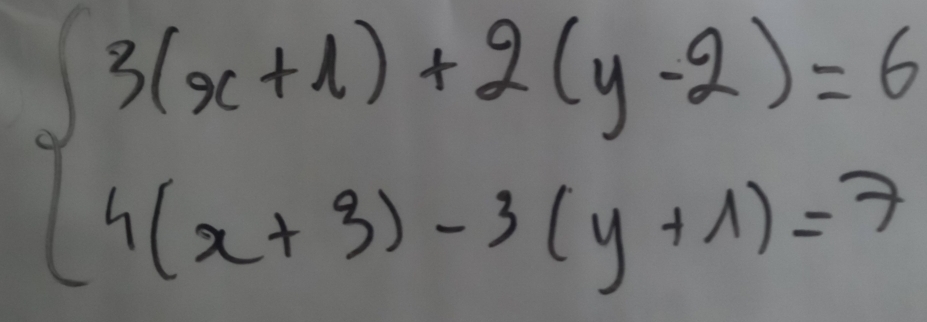 3(x+1) + 2(y-2) = 6
4(x+3) - 3(y+1) = 7